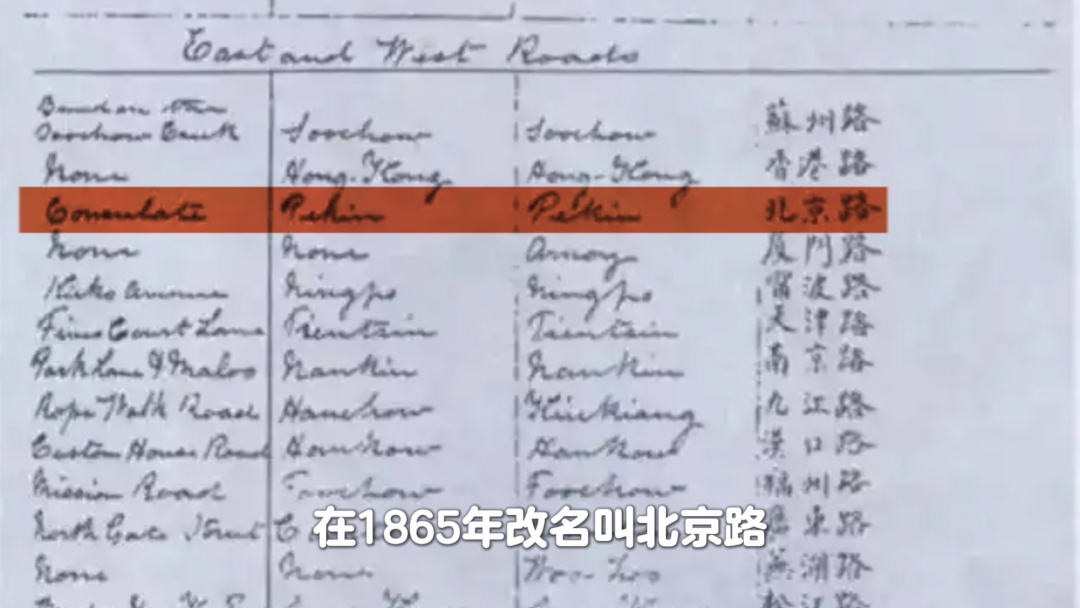 East and West Roads
Soochow Creek Soochow Soochow 蘇州路
None Hong-Kong Hong-Kong 香港路
Consulate Pekin Pekin 北京路
None None Amoy 厦門路
Kirks Avenue Ningpo Ningpo 寧波路
Fives Court Lane Tientsin Tientsin 天津路
Park Lane & Maloo Nankin Nankin 南京路
Rope Walk Road Hanchow Kiukiang 九江路
Custom House Road Hankow Hankow 漢口路
Mission Road Foochow Foochow 福州路
North Gate Street 廣東路
在1865年改名叫北京路
None None Woo-hoo 蕪湖路
松江路